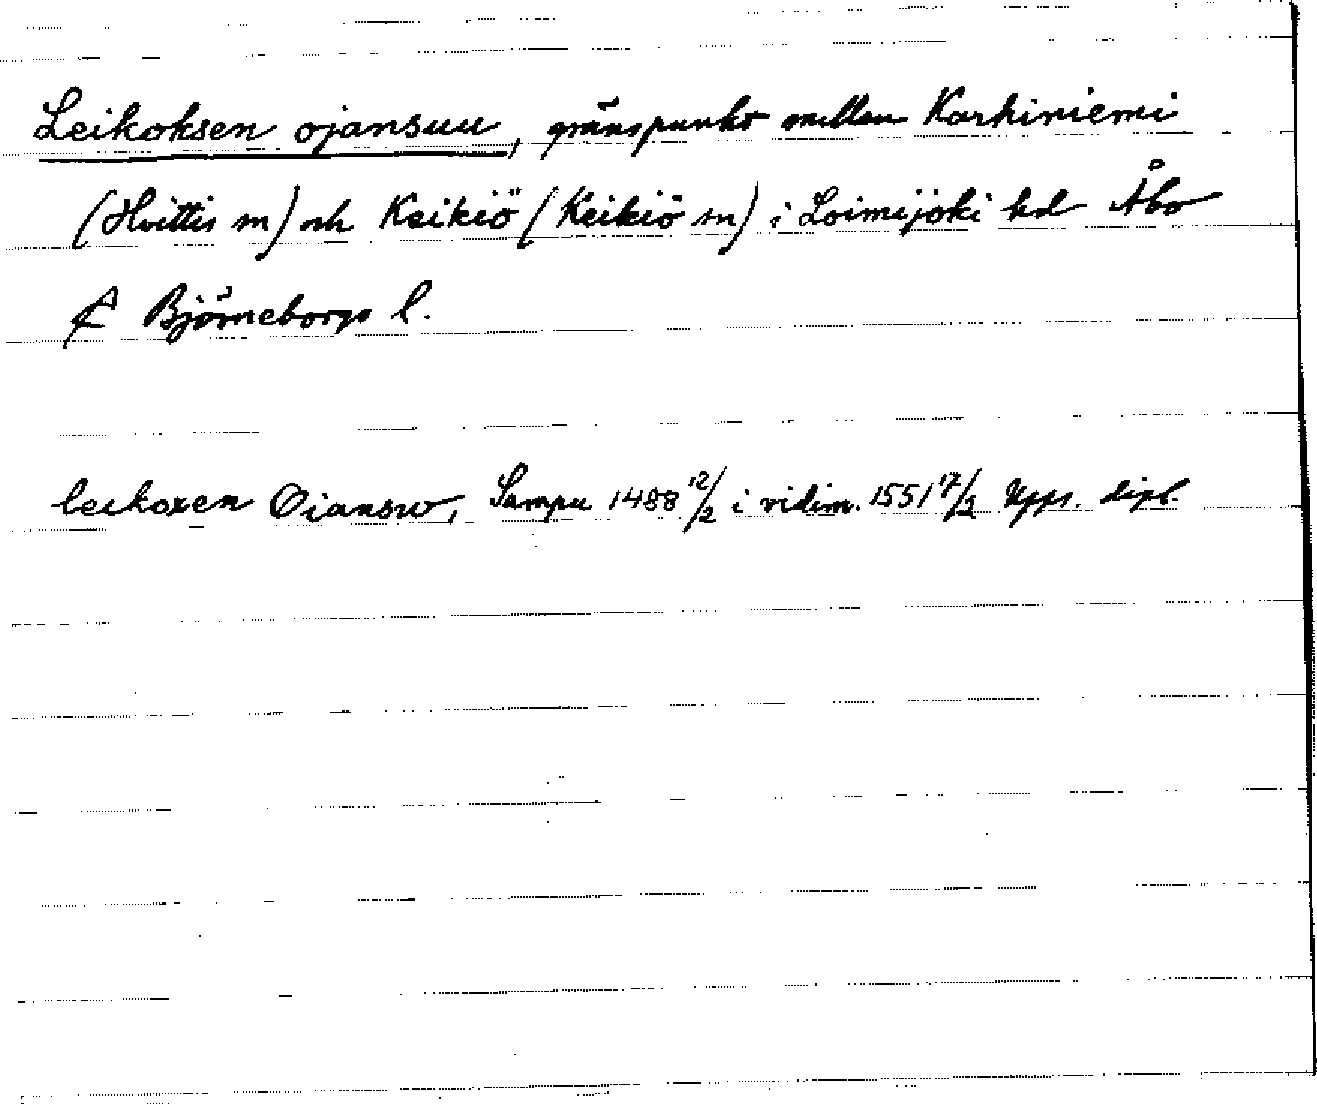 Leikoksen ojansuu, gränspunkt mellan Karhiniemi
(Hvittis sn) och Keikiö (Keikiö sn) i Loimijoki hd Åbo
& Björneborgs l.
leikoxen Oiansw, Sampu 1488 12/2 i vidim. 1551 17/2 Upps. dipl.